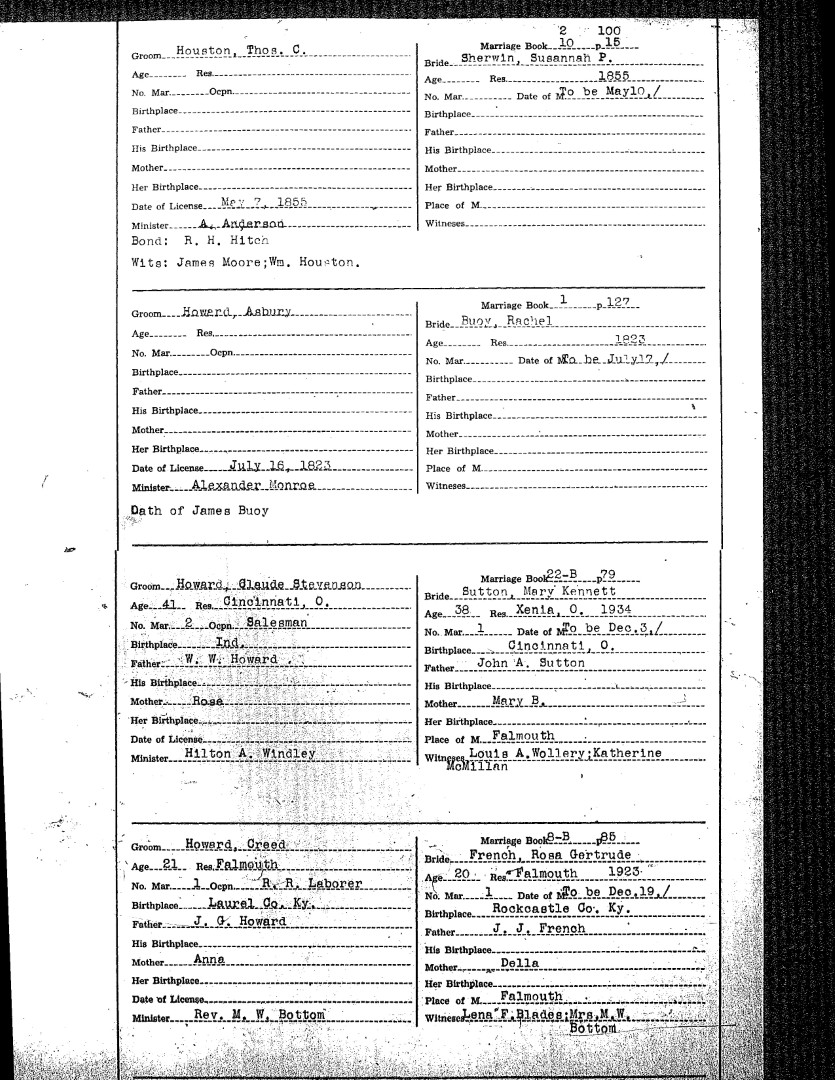 2 100
Marriage Book 10 p 15
Groom Houston, Thos. C.
Bride Sherwin, Susannah P.
Age Res.
Age Res. 1855
No. Mar. Ocpn.
No. Mar. Date of M. To be May10,/
Birthplace
Birthplace
Father
Father
His Birthplace
His Birthplace
Mother
Mother
Her Birthplace
Her Birthplace
Date of License May 7, 1855
Place of M.
Minister A. Anderson
Witneses
Bond: R. H. Hitch
Wits: James Moore;Wm. Houston.
Marriage Book 1 p 127
Groom Howard, Asbury
Bride Buoy, Rachel
Age Res.
Age Res. 1823
No. Mar. Ocpn.
No. Mar. Date of M. To be July17,/
Birthplace
Birthplace
Father
Father
His Birthplace
His Birthplace
Mother
Mother
Her Birthplace
Her Birthplace
Date of License July 16, 1823
Place of M.
Minister Alexander Monroe
Witneses
Oath of James Buoy
Marriage Book 22-B p 79
Groom Howard, Claude Stevenson
Bride Sutton, Mary Kennett
Age 41 Res. Cincinnati, O.
Age 38 Res. Xenia, O. 1934
No. Mar. 2 Ocpn. Salesman
No. Mar. 1 Date of M. To be Dec.3,/
Birthplace Ind.
Birthplace Cincinnati, O.
Father W. W. Howard
Father John A. Sutton
His Birthplace
His Birthplace
Mother Rosa
Mother Mary B.
Her Birthplace
Her Birthplace
Date of License
Place of M. Falmouth
Minister Hilton A. Windley
Witneses Louis A.Wollery;Katherine
McMillan
Marriage Book 8-B p 85
Groom Howard, Creed
Bride French, Rosa Gertrude
Age 21 Res. Falmouth
Age 20 Res. Falmouth 1923
No. Mar. 1 Ocpn. R. R. Laborer
No. Mar. 1 Date of M. To be Dec.19,/
Birthplace Laurel Co. Ky.
Birthplace Rockcastle Co. Ky.
Father J. G. Howard
Father J. J. French
His Birthplace
His Birthplace
Mother Anna
Mother Della
Her Birthplace
Her Birthplace
Date of License
Place of M. Falmouth
Minister Rev. M. W. Bottom
Witneses Lena F.Blades;Mrs.M.W.
Bottom